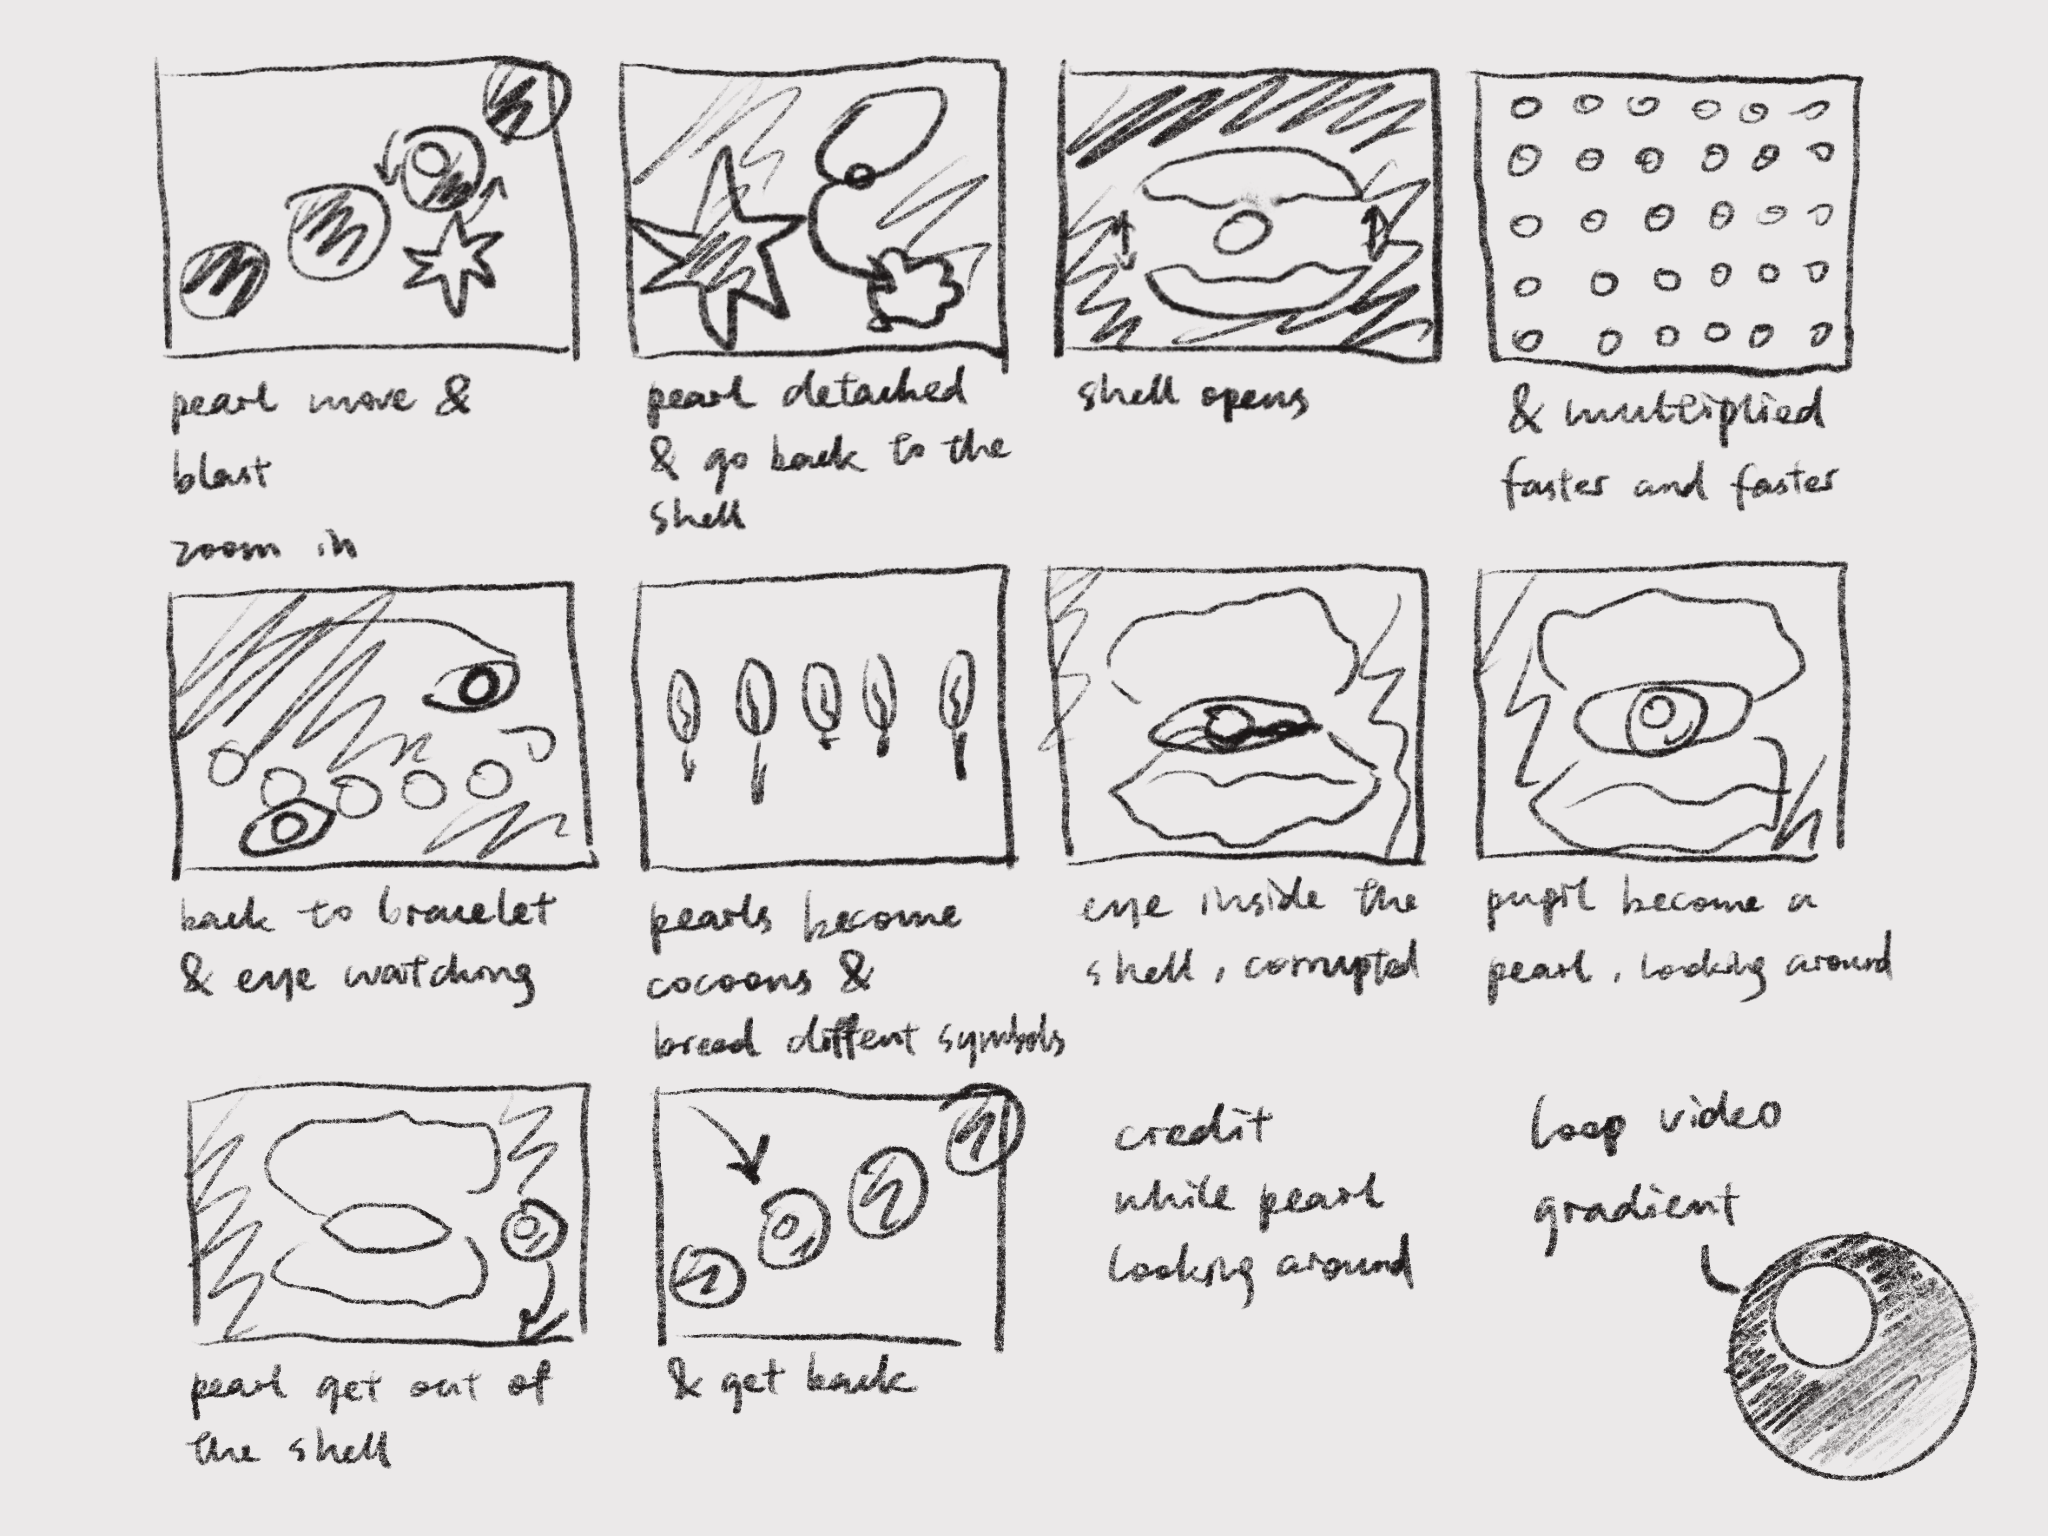 pearl move &
blast
zoom in
pearl detached
& go back to the
shell
shell opens
& multiplied
faster and faster
back to bracelet
& eye watching
pearls become
cocoons &
breed diffent symbols
eye inside the
shell, corrupted
pupil become a
pearl, looking around
pearl get out of
the shell
& get back
credit
while pearl
looking around
loop video
gradient